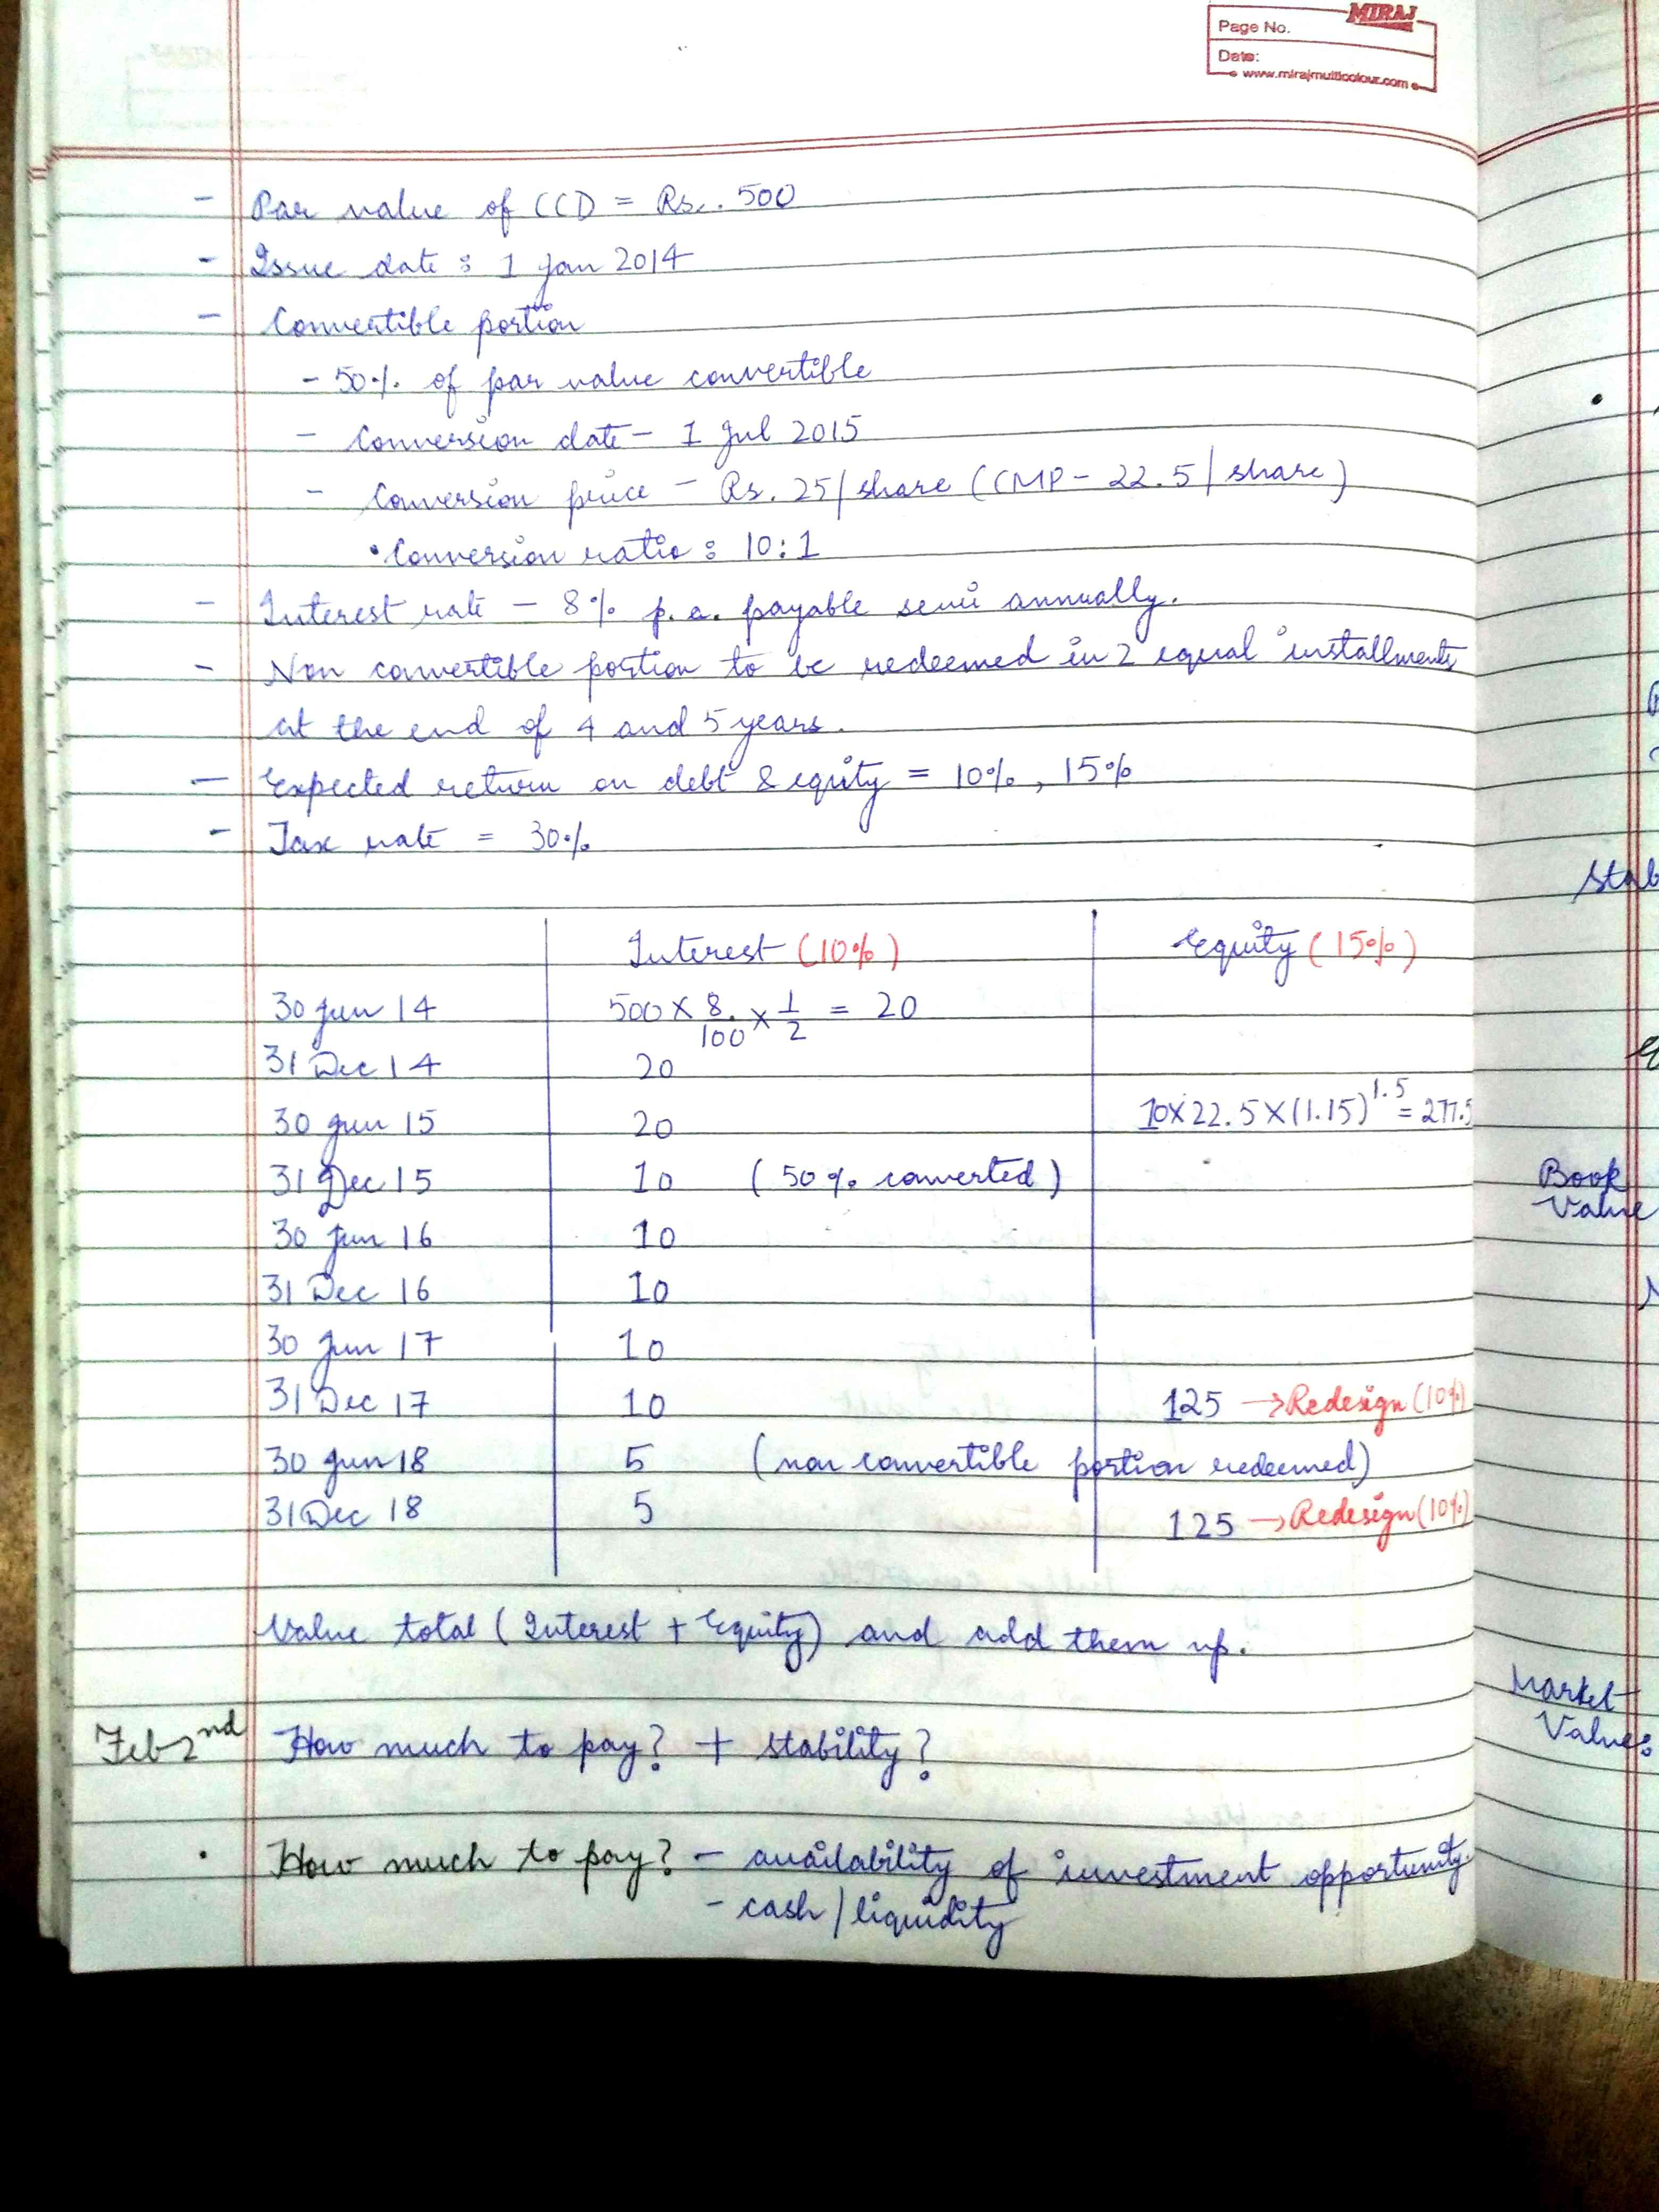 MIRAJ
Page No.
Date:
www.mirajmulticolour.com
- Par value of CCD = Rs. 500
- Issue date : 1 Jan 2014
- Convertible portion
- 50% of par value convertible
- Conversion date - 1 Jul 2015
- Conversion price - Rs. 25/share (CMP - 22.5/share)
• Conversion ratio : 10:1
- Interest rate - 8% p.a. payable semi annually.
- Non convertible portion to be redeemed in 2 equal installments
at the end of 4 and 5 years.
- Expected return on debt & equity = 10%, 15%
- Tax rate = 30%
Interest (10%) Equity (15%)
30 Jun 14 500 × 8/100 × 1/2 = 20
31 Dec 14 20
30 Jun 15 20 10×22.5×(1.15)^1.5 = 277.5
31 Dec 15 10 (50% converted)
30 Jun 16 10
31 Dec 16 10
30 Jun 17 10
31 Dec 17 10 125 → Redesign (10%)
30 Jun 18 5 (non convertible portion redeemed)
31 Dec 18 5 125 → Redesign (10%)
Value total (Interest + Equity) and add them up.
Feb 2nd How much to pay? + stability?
• How much to pay? - availability of investment opportunity.
- cash / liquidity
Stab
Book
Value
Market
Value: